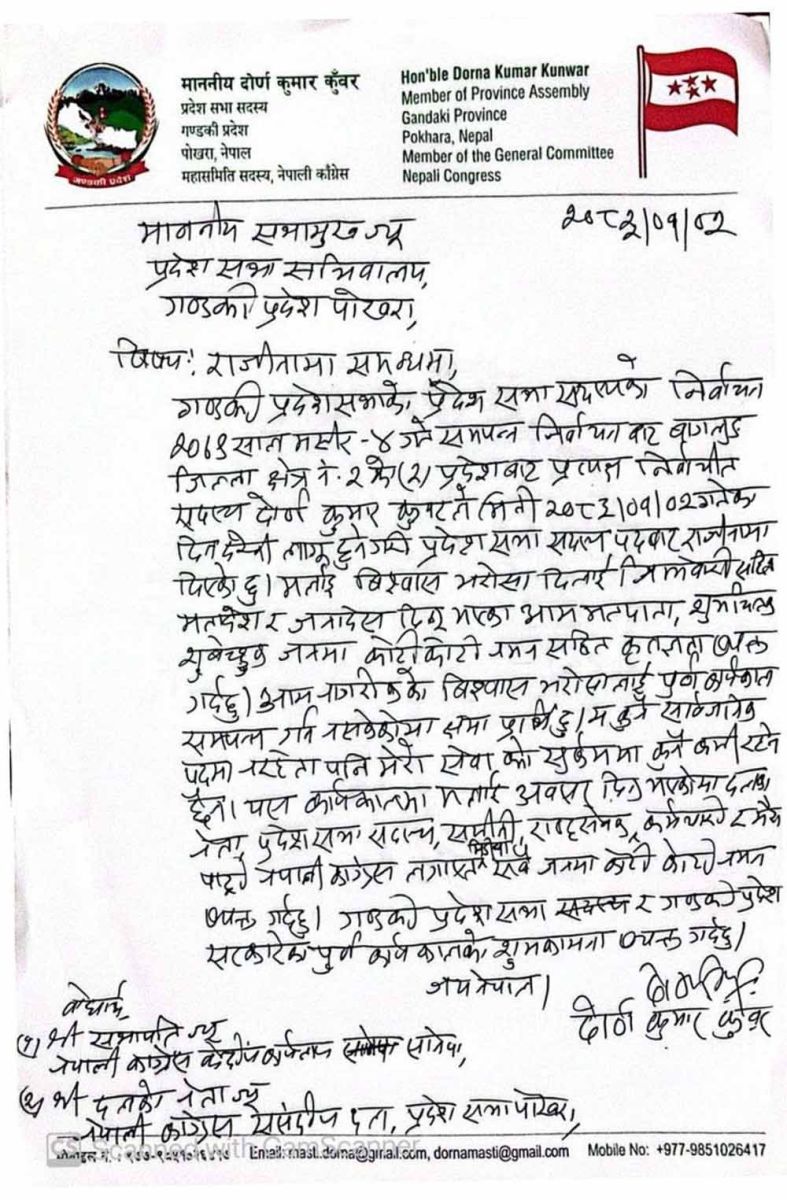 माननीय दोर्ण कुमार कुँवर
प्रदेश सभा सदस्य
गण्डकी प्रदेश
पोखरा, नेपाल
महासमिति सदस्य, नेपाली काँग्रेस
Hon'ble Dorna Kumar Kunwar
Member of Province Assembly
Gandaki Province
Pokhara, Nepal
Member of the General Committee
Nepali Congress
गण्डकी प्रदेश
२०८३/०१/०२
माननीय सभामुख ज्यू
प्रदेश सभा सचिवालय,
गण्डकी प्रदेश पोखरा,
विषय: राजीनामा सम्बन्धमा,
गण्डकी प्रदेश सभाको प्रदेश सभा सदस्यको निर्वाचन
२०७९ साल मंसीर -४ गते सम्पन्न निर्वाचन बाट बागलुङ
जिल्ला क्षेत्र नं. २ को (२) प्रदेशबाट प्रत्यक्ष निर्वाचीत
सदस्य दोर्ण कुमार कुवरले मिती २०८३/०१/०२ गतेका
दिन देखी लागू हुनेगरी प्रदेश सभा सदस्य पदबाट राजीनामा
दिएको छु। मलाई विश्वास भरोसा दिलाई सहित
मतदेश र जनादेस दिनु भएका आम मतदाता, शुभचिन्तक
शुबेच्छुक जनमा कोटी कोटी नमन सहित कृतज्ञता व्यक्त
गर्दछु। आम नागरीकको बिश्वास भरोसालाई पुर्ण कार्यकाल
सम्पन्न गर्न नसकेकोमा क्षमा प्रार्थि छु। म कुनै सार्वजानिक
पदमा नरहेता पनि मेरो सेवा को सुकर्ममा कुनै कमी रहने
छैन। यस कार्यकालमा मलाई अवसर दिनु भएकोमा दलका
नेता, प्रदेश सभा सदस्य, समीती, राष्ट्रसेवक, कर्मचारी र मेरो
पार्टी नेपाली कांग्रेस लगाएत मिडिया सबै जनमा कोटी कोटी नमन
व्यक्त गर्दछु। गण्डकी प्रदेश सभा सदस्य र गण्डकी प्रदेश
सरकारको पुर्ण कार्य कालको शुभकामना व्यक्त गर्दछु।
जय नेपाल।
दोर्ण कुमार कुँवर
बोधार्थ
१) श्री सभापति ज्यू
नेपाली कांग्रेस केन्द्रीय कार्यालय सानेपा,
२) श्री दलको नेता ज्यू
नेपाली कांग्रेस संसदीय दल, प्रदेश सभा पोखरा,
CS Scanned with CamScanner
मोबाइल नं. : ९७७-९८५१०२६४१७ Email: masti.dorna@gmail.com, dornamasti@gmail.com Mobile No: +977-9851026417